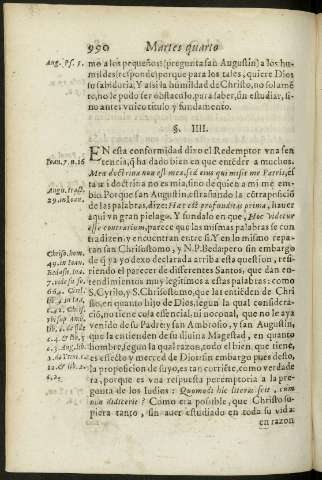 990 Martes quarto
Aug. Ps. 5.
mo a los pequeños? (pregunta san Augustin) a los hu-
mildes (responde) porque para los tales, quiere Dios
su sabiduria. Y assi la humildad de Christo, no solamẽ
te, no le podo ser obstaculo, para saber, sin estudiar, si-
no antes vnico titulo y fundamento.
§. IIII.
EN esta conformidad dixo el Redemptor vna sen
Ioan. 7. n. 16
tencia, q̃ ha dado bien en que entẽder a muchos.
Mea doctrina non est mea, sed eius qui misit me Patris, es
ta mi doctrina no es mia, sino de quien a mi me em-
Augu. tract.
29. in Ioan.
bio. Porque san Augustin, estrañando la composició
de las palabras, dize: Hac est profunditas prima, hauer
aqui vn gran pielago. Y fundalo en que, Hoc videtur
esse contrarium, parece que las mismas palabras se con
tradizen y encuentran entre si. Y en lo mismo repa-
ran san Chrisostomo, y N. P. Beda: pero sin embargo
Chriso. hom.
49. in Ioan.
de q̃ ya yo dexo declarada arriba esta question, refi-
riendo el parecer de differentes Santos, que dan en-
tendimientos muy legitimos a estas palabras: como
S. Cyrilo, y S. Chrisostomo, que las entiẽden de Chri
sto, en quanto hijo de Dios, segun la qual considera-
ció, no tiene cosa essencial, ni nocional, que no le aya
venido de su Padre: y san Ambrosio, y san Augustin,
que la entienden de su diuina Magestad, en quanto
hombre, segun la qual razon, todo el bien, que tiene,
es effecto y merced de Dios: sin embargo pues desto,
la proposicion de suyo, es tan corriẽte, como verdade
ra, porque es vna respuesta peremptoria a la pre-
gunta de los Iudios: Quomodo hic literas scit, cum
non didicerit? Como era possible, que Christo su-
piera tanto, sin auer estudiado en toda su vida:
en razon